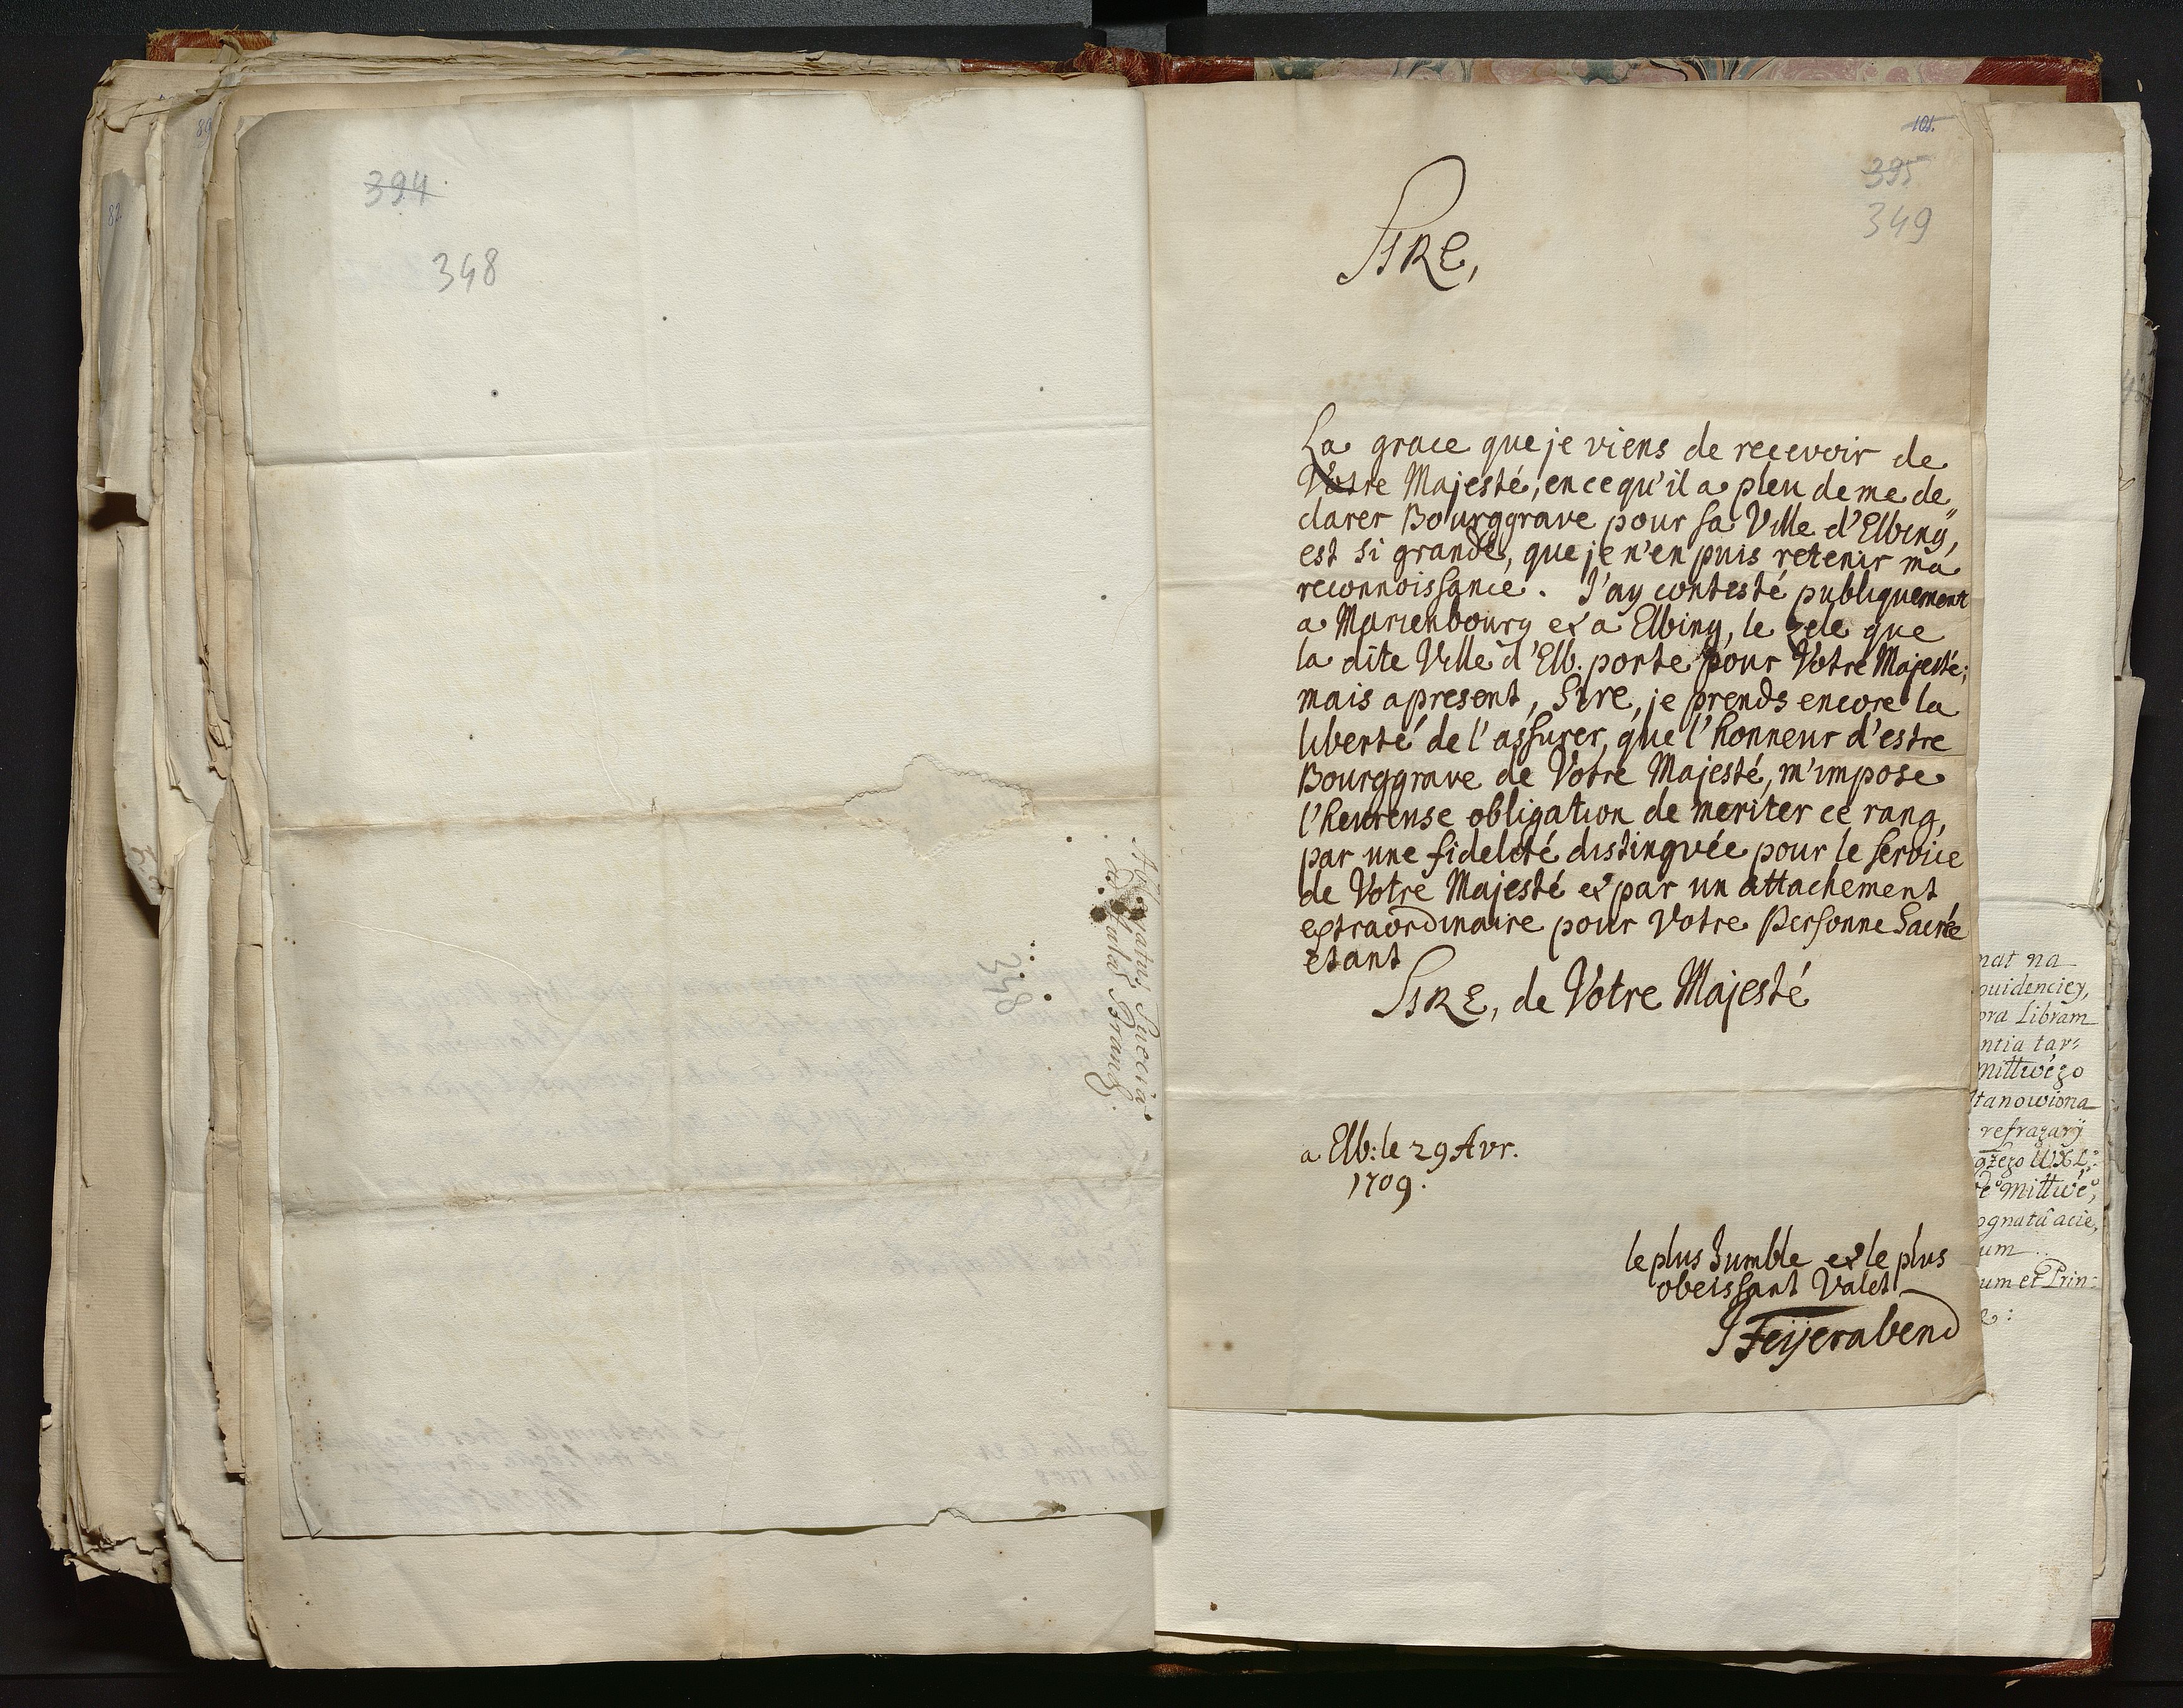 394.
348
Ablegatus Sueciæ
ad Aulad Brand.
348
101.
395
349
SIRE,
La grace que je viens de recevoir de
Votre Majesté, en ce qu'il a pleu de me de„
clarer Bourggrave pour sa Ville d'Elbing,
est si grande, que je n'en puis retenir ma
reconnoissance. J'ay contesté publiquement
a Marienbourg et a Elbing, le zele que
la dite Ville d'Elb. porte pour Votre Majesté;
mais apresent, Sire, je prends encore la
liberté de l'assurer, que l'honneur d'estre
Bourggrave de Votre Majesté, m'impose
l'heureuse obligation de meriter ce rang,
par une fideleté distinguée pour le service
de Votre Majesté et par un attachement
extraordinaire pour Votre Personne Sacrée
etant
SIRE, de Votre Majesté
a Elb: le 29 Avr.
1709.
le plus humble et le plus
obeissant Valet
J Feijerabend
nat na
ouidenciey,
ora Libram
ntia tar:
Mittwégo
stanowiona
refragarÿ
Mittwé,
ognatâ acie,
um
um et Prin: